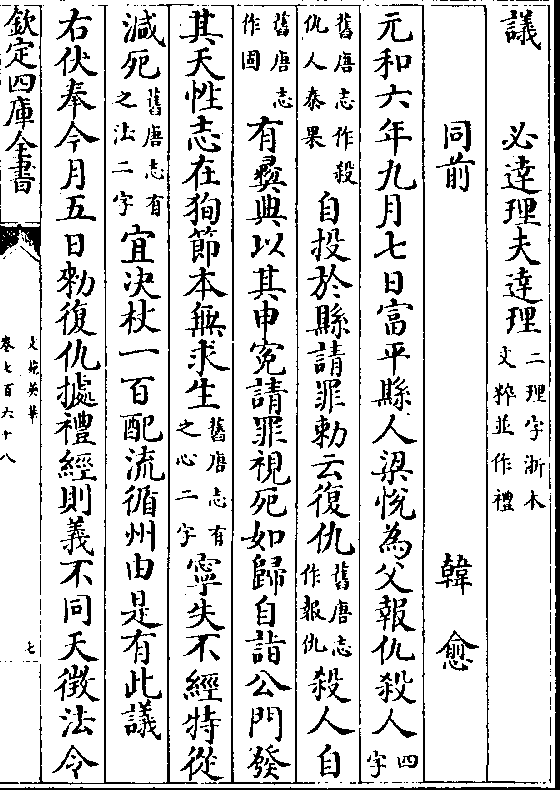 議　必達理夫達理二理字浙本文粹並作禮
同前　韓愈
元和六年九月七日富平縣人梁悅為父報仇殺人四字
舊唐志作殺仇人秦果自投於縣請罪勅云復仇舊唐志作報仇殺人自
舊唐志作固有彛典以其申冤請罪視死如歸自詣公門發
其天性志在狥節本無求生舊唐志有之心二字寧失不經特從
減死舊唐志有之法二字宜決杖一百配流循州由是有此議
右伏奉今月五日勅復仇據禮經則義不同天徵法令
欽定四庫全書
文苑英華
卷七百六十八
七